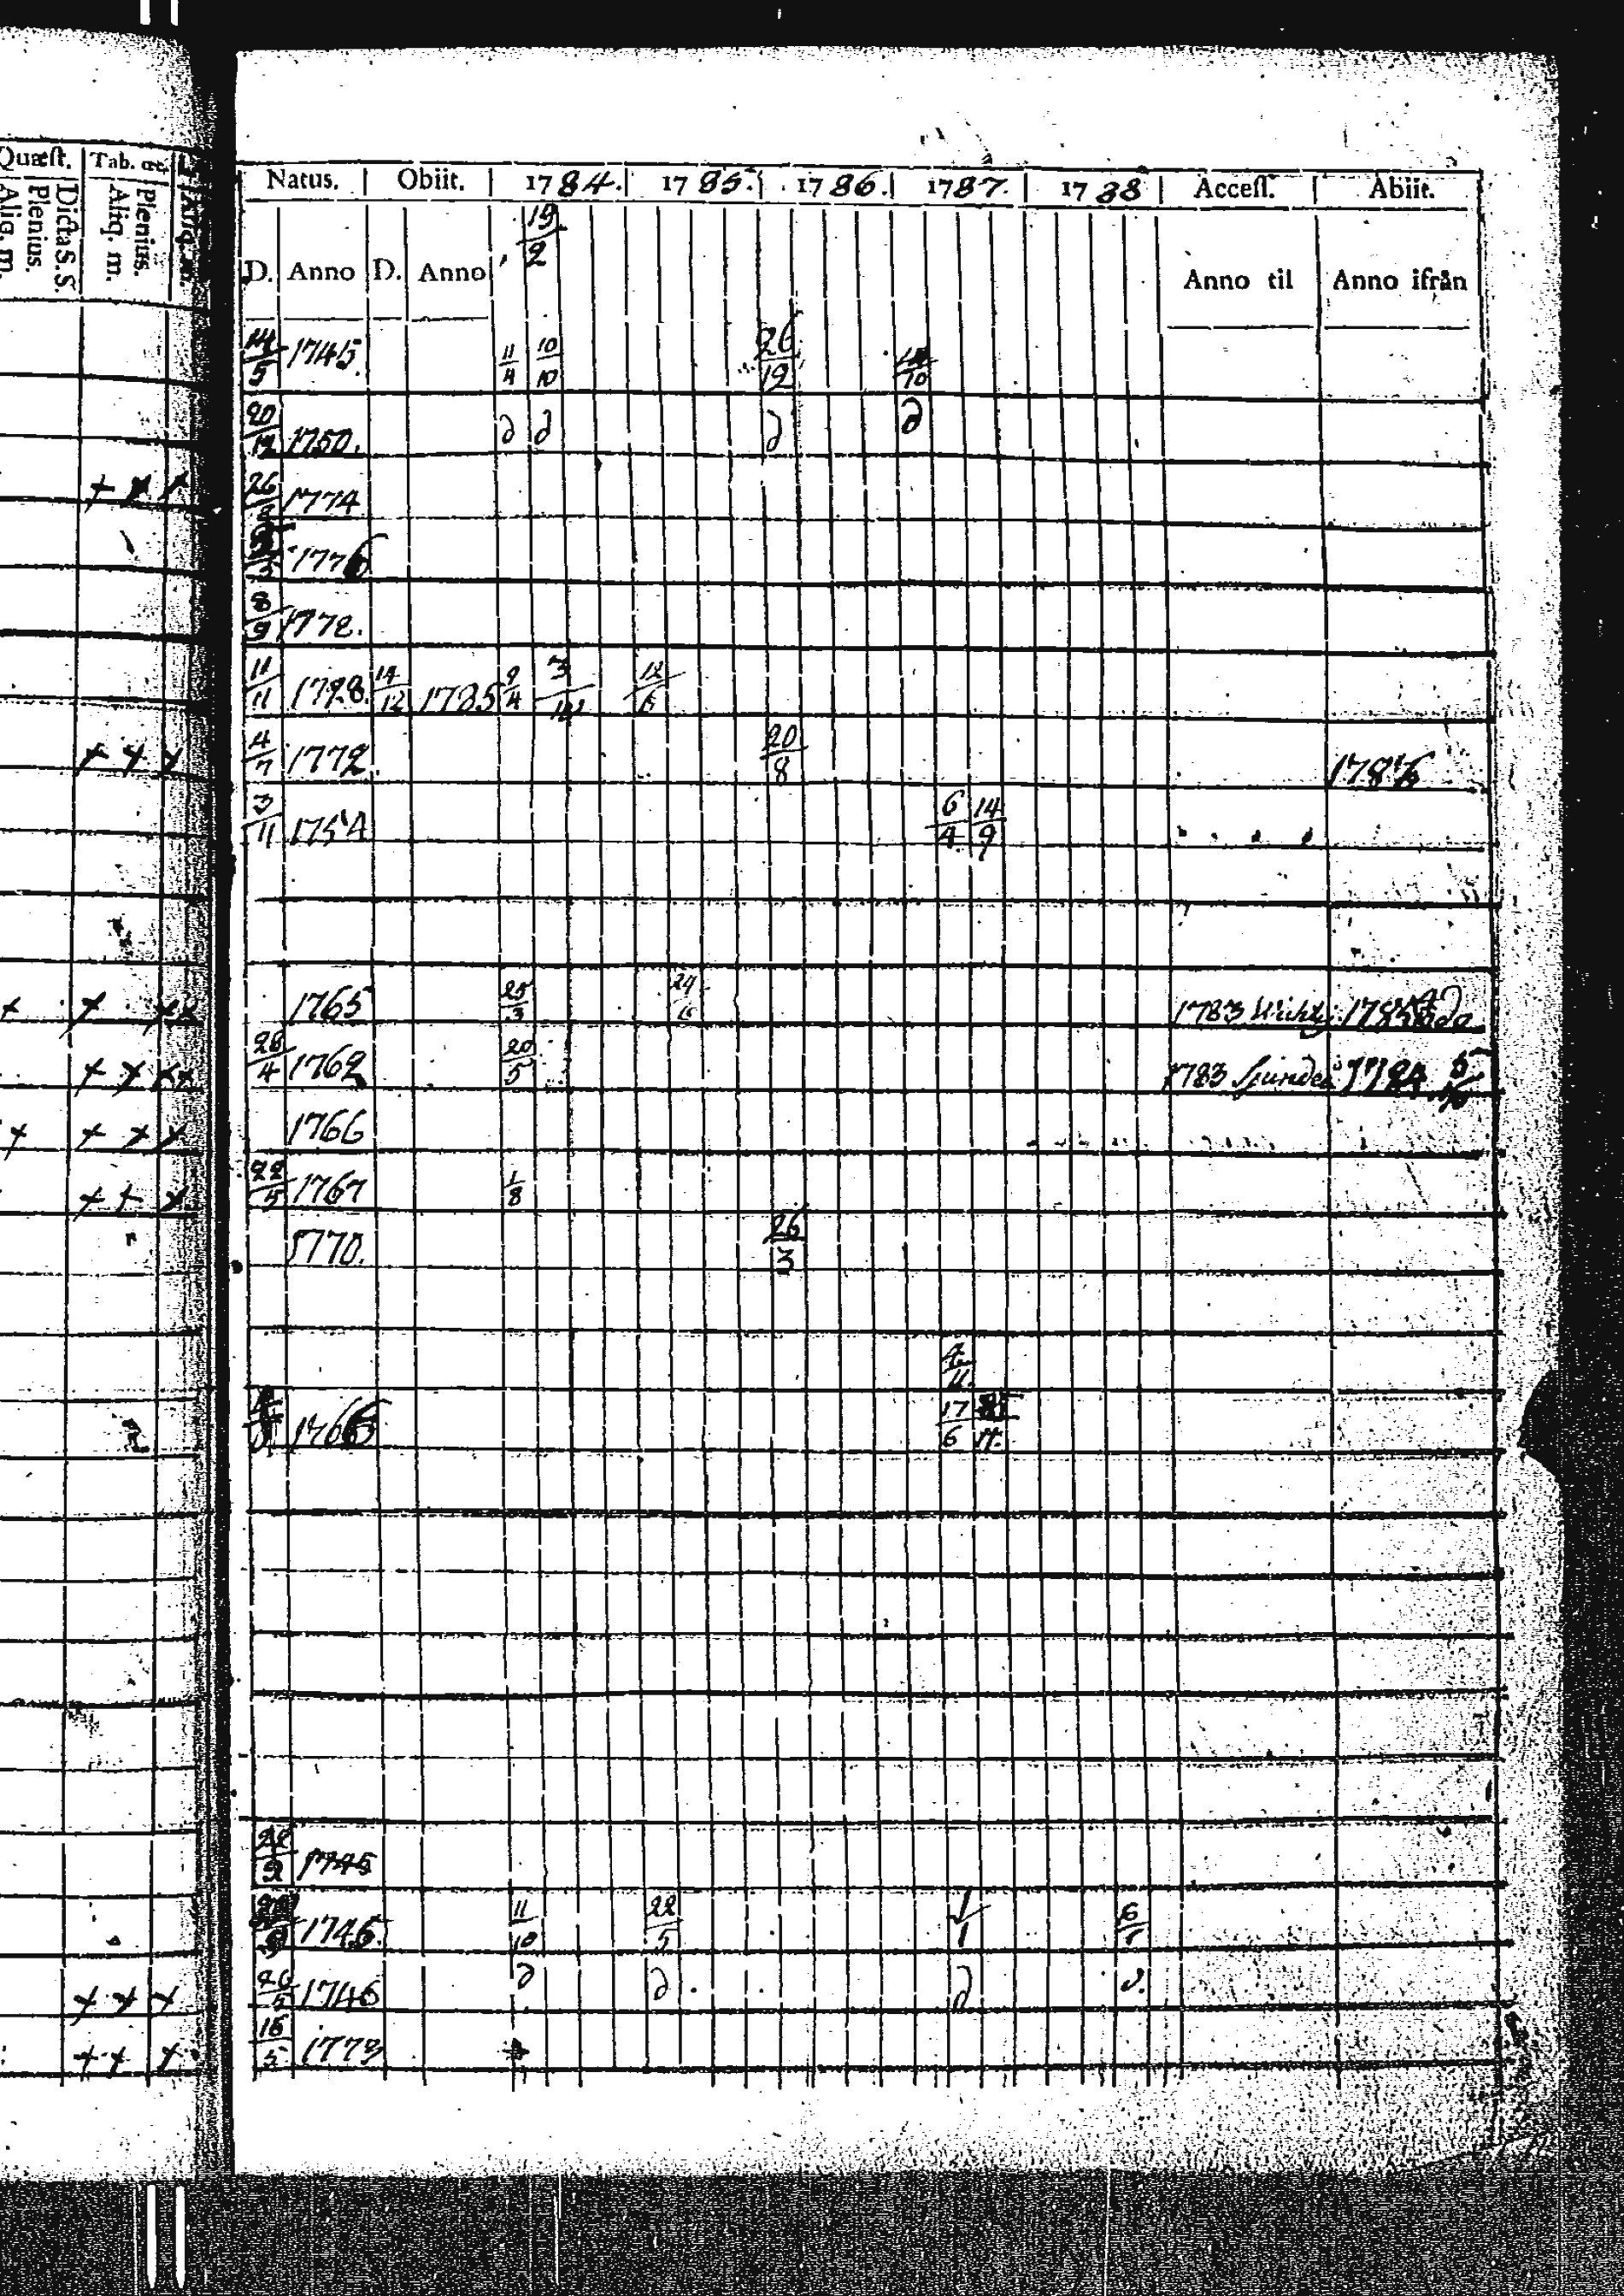 Quæst. Tab. œc.
Dicta S. S.
Plenius.
Aliq. m.
Plenius.
Aliq. m.
Aliq. m.
Natus. Obiit. 1784. 1785. 1786. 1787. 1788 Access. Abiit.
19/2
D. Anno D. Anno Anno til Anno ifrån
14/5 1745. 11/4 10/10 26/12 /10
20/12 1750. d d d d
+ + +
26/ 1774
1776
8/9 1778.
11/11 1728. 14/12 1785 9/4 3/ 12/
+ + +
4/7 1772. 20/8 1786
3/11 1754 6/4 14/9
+ + + +
1765 25/3 24/ 1783 1785
+ + + +
28/4 1762 20/5 1783 1784
+ + + +
1766
+ + +
22/5 1767 1/8
1770. 26/3
/11
1766 17/6
1745
1745. 11/10 22/5 1/1 6/
+ + +
26/5 1746 d d d d.
+ + +
15/5 1773